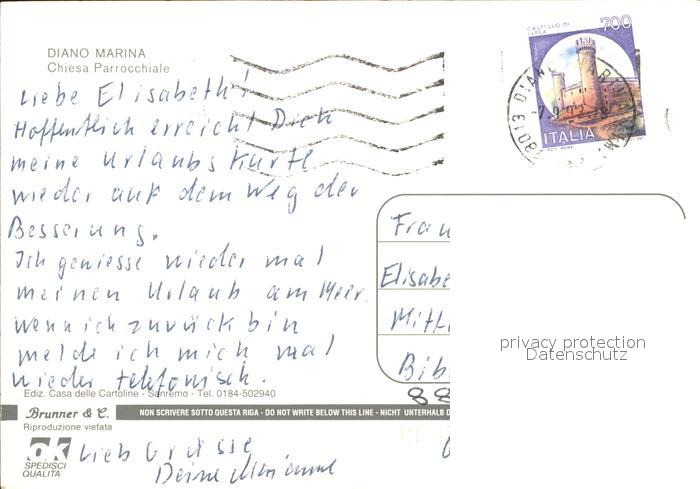 DIANO MARINA
Chiesa Parrocchiale
Liebe Elisabeth!
Hoffentlich erreicht Dich
meine Urlaubskarte
wieder auf dem Weg der
Besserung.
Ich geniesse wieder mal
meinen Urlaub am Meer.
wenn ich zurück bin
melde ich mich mal
wieder telefonisch.
Lieb Grüsse
Deine Marianne
CASTELLO DI
IVREA
700
ITALIA
18013 DIANO MARINA
Frau
Elisabe
Mitt
Bib
88
privacy protection
Datenschutz
Ediz. Casa delle Cartoline - Sanremo - Tel. 0184-502940
Brunner & C.
NON SCRIVERE SOTTO QUESTA RIGA - DO NOT WRITE BELOW THIS LINE - NICHT UNTERHALB D
Riproduzione vietata
ok
SPEDISCI
QUALITÀ